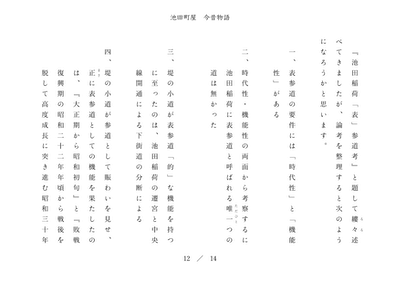 池田町屋　今昔物語
『池田稲荷「表」参道考』と題して縷々述
べてきましたが、論考を整理すると次のよう
になろうかと思います。
一、表参道の要件には「時代性」と「機能
性」がある
二、時代性・機能性の両面から考察するに
池田稲荷に表参道と呼ばれる唯一つの
道は無かった
三、堤の小道が表参道「的」な機能を持つ
に至ったのは、池田稲荷の遷宮と中央
線開通による下街道の分断による
四、堤の小道が参道として賑わいを見せ、
正に表参道としての機能を果たしたの
は、『大正期から昭和初旬』と『敗戦
復興期の昭和二十二年頃から戦後を
脱して高度成長に突き進む昭和三十年
12 ／ 14